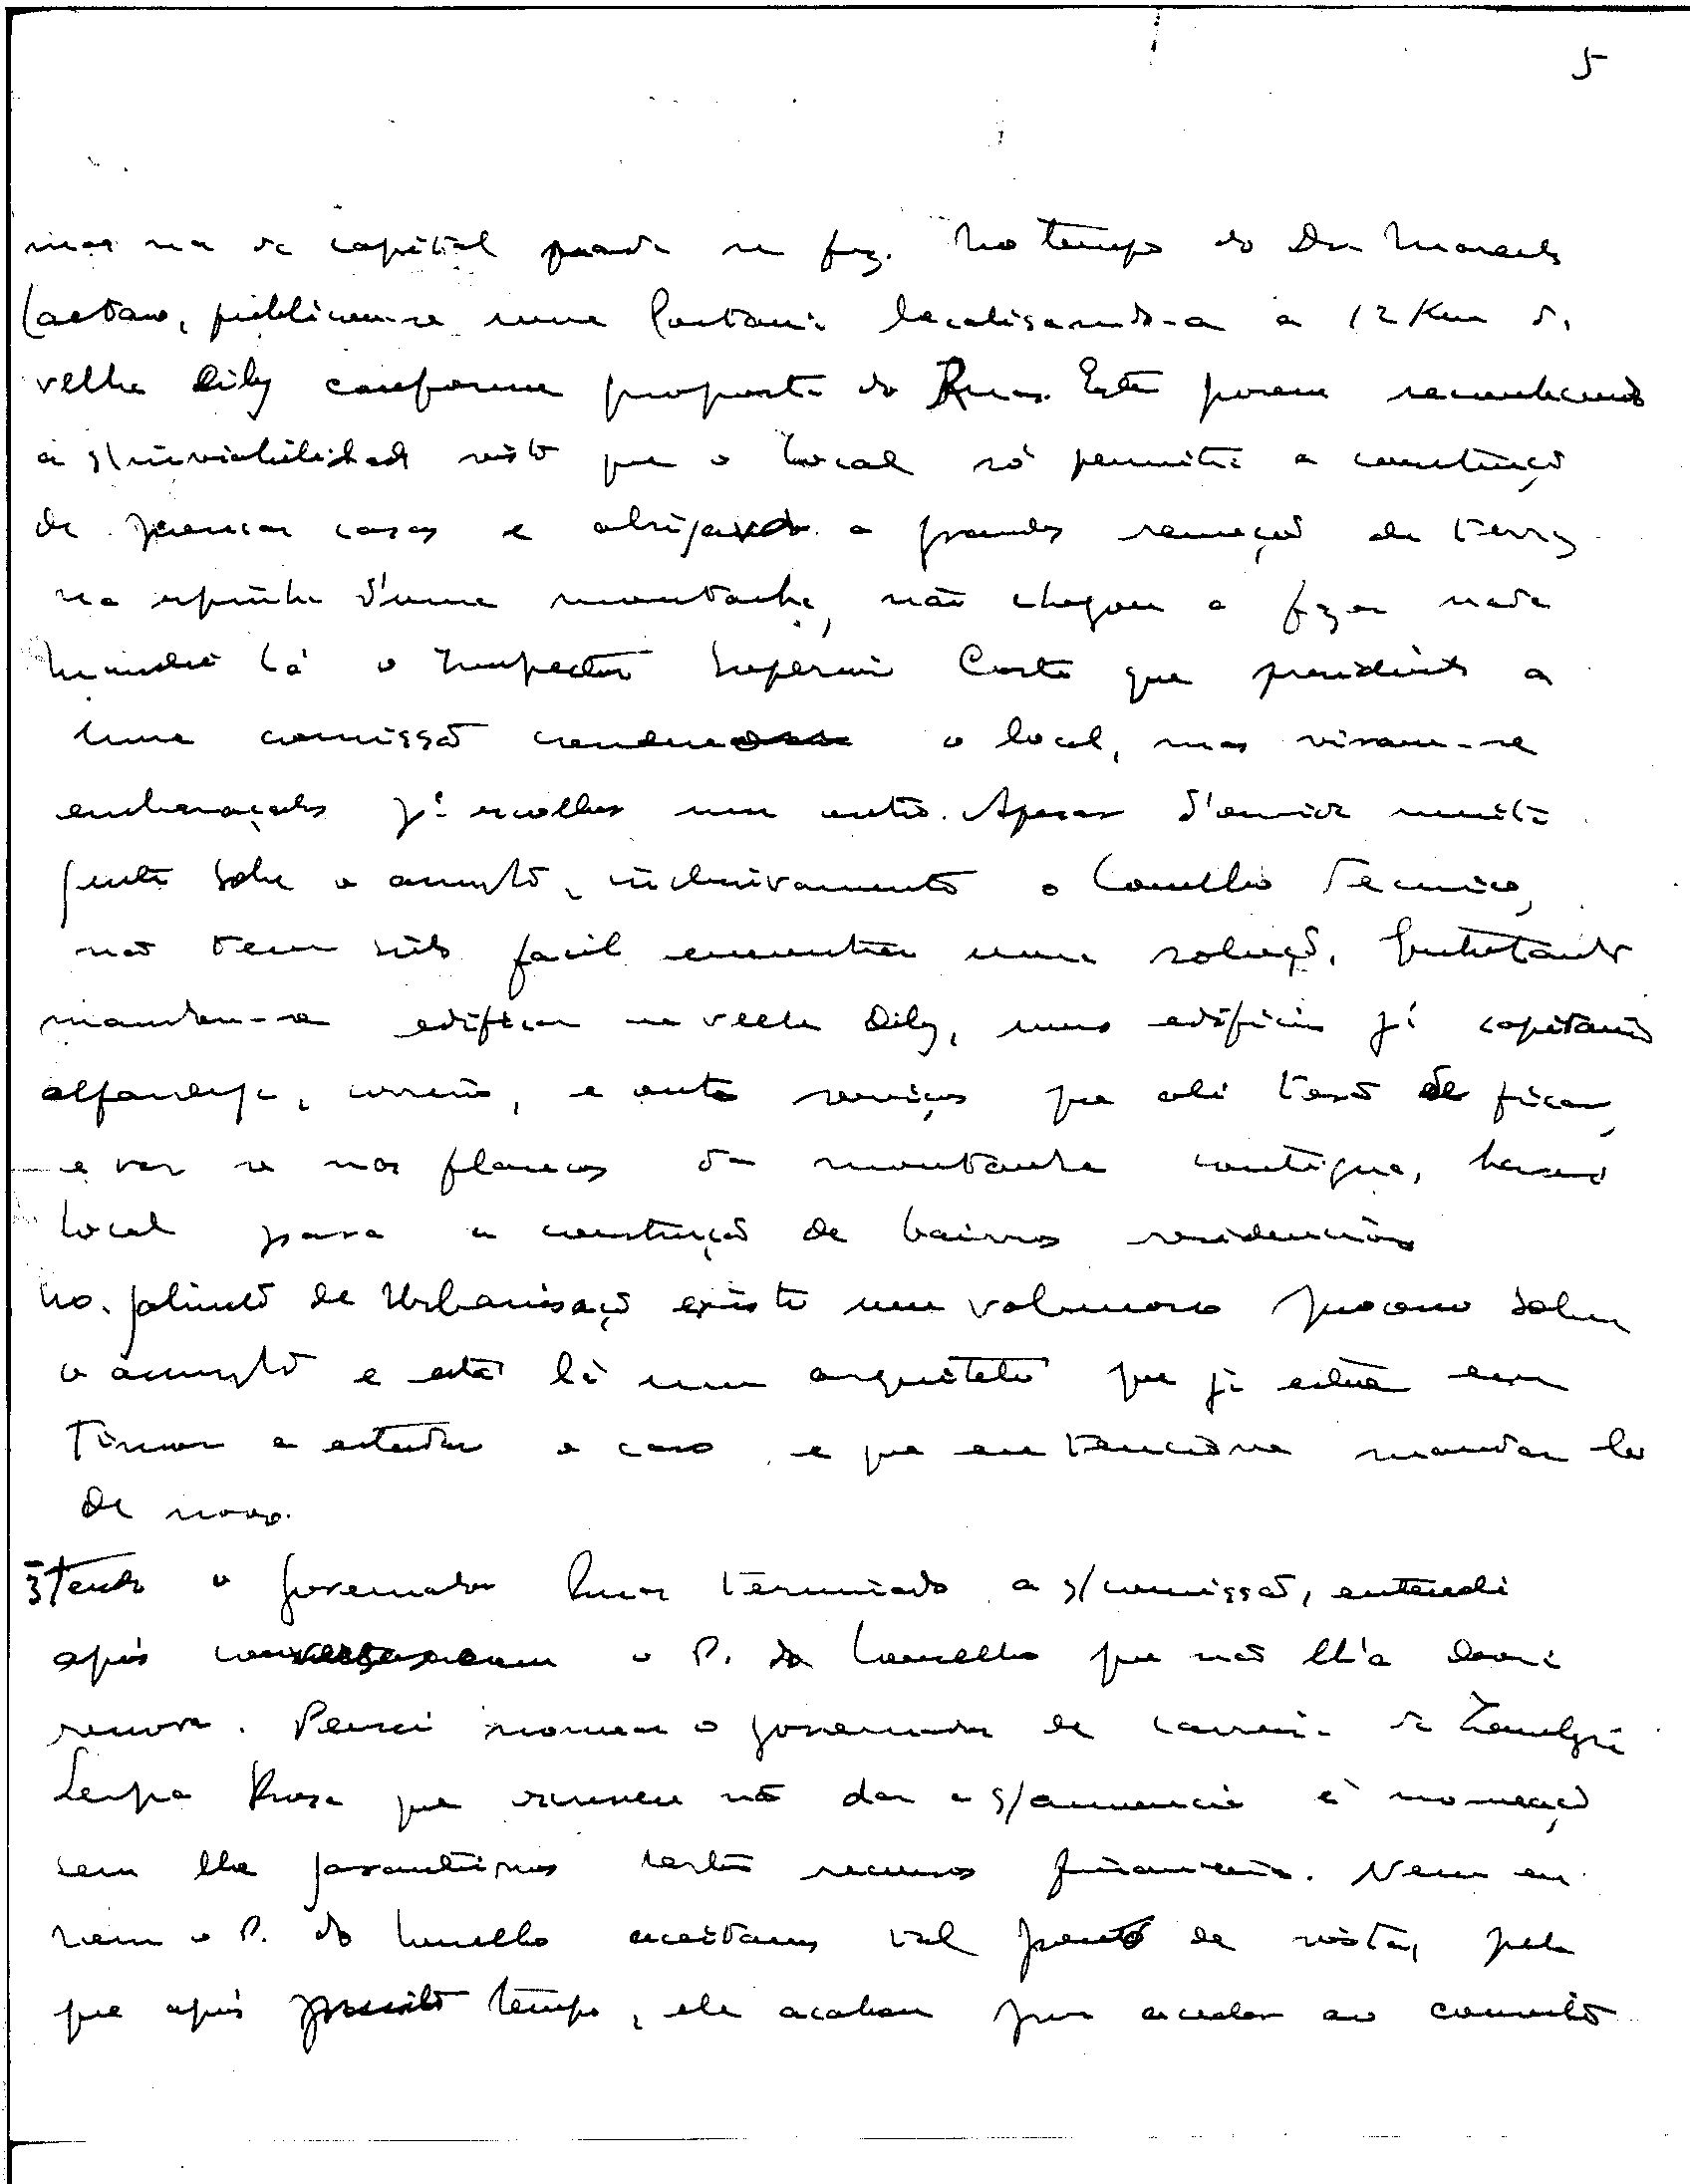 5
mas na da capital nada se fez. No tempo do Dr. Marcelo
Caetano, publicou-se uma Portaria localisando-a a 12 Km da
velha Dily conforme proposta do Ruas. Este porem reconhecendo
a s/inviabilidade visto que o local só permitia a construção
de poucas casas e obrigando a grandes remoção de terras
na espinha d'uma montanha, não chegou a fazer nada
Mandei lá o Inspector Superior Costa que presidindo a
uma comissão condenou o local, mas viram-se
embaraçados p.ª escolher um outro. Apesar d'ouvir muita
gente sobre o assunto, inclusivamente o Conselho Tecnico,
não tem sido facil encontrar uma solução. Entretanto
mandou-se edificar na velha Dily, uns edificios p.ª capitania
alfandega, correio, e outros serviços que ali terão de ficar,
e ver se nos flancos da montanha contigua, haverá
local para a construção de bairros residenciais
No gabinete de Urbanisação existe um volumoso processo sobre
o assunto e está lá um arquiteto que já esteve em
Timor a estudar o caso, e que eu tenciono mandar lá
de novo.
3º Tendo o governador Ruas terminado a s/comissão, entendi
após conversar com o P. do Conselho que não lh'a devia
renovar. Pensei nomear o governador de carreira da Zambezia
Serpa Rosa que escreveu não dar a s/anuencia à nomeação
sem lhe garantirmos certos recursos financeiros. Nem eu
nem o P. do Conselho aceitamos tal ponto de vista, pelo
que após muito tempo, ele acabou por aceder ao convite